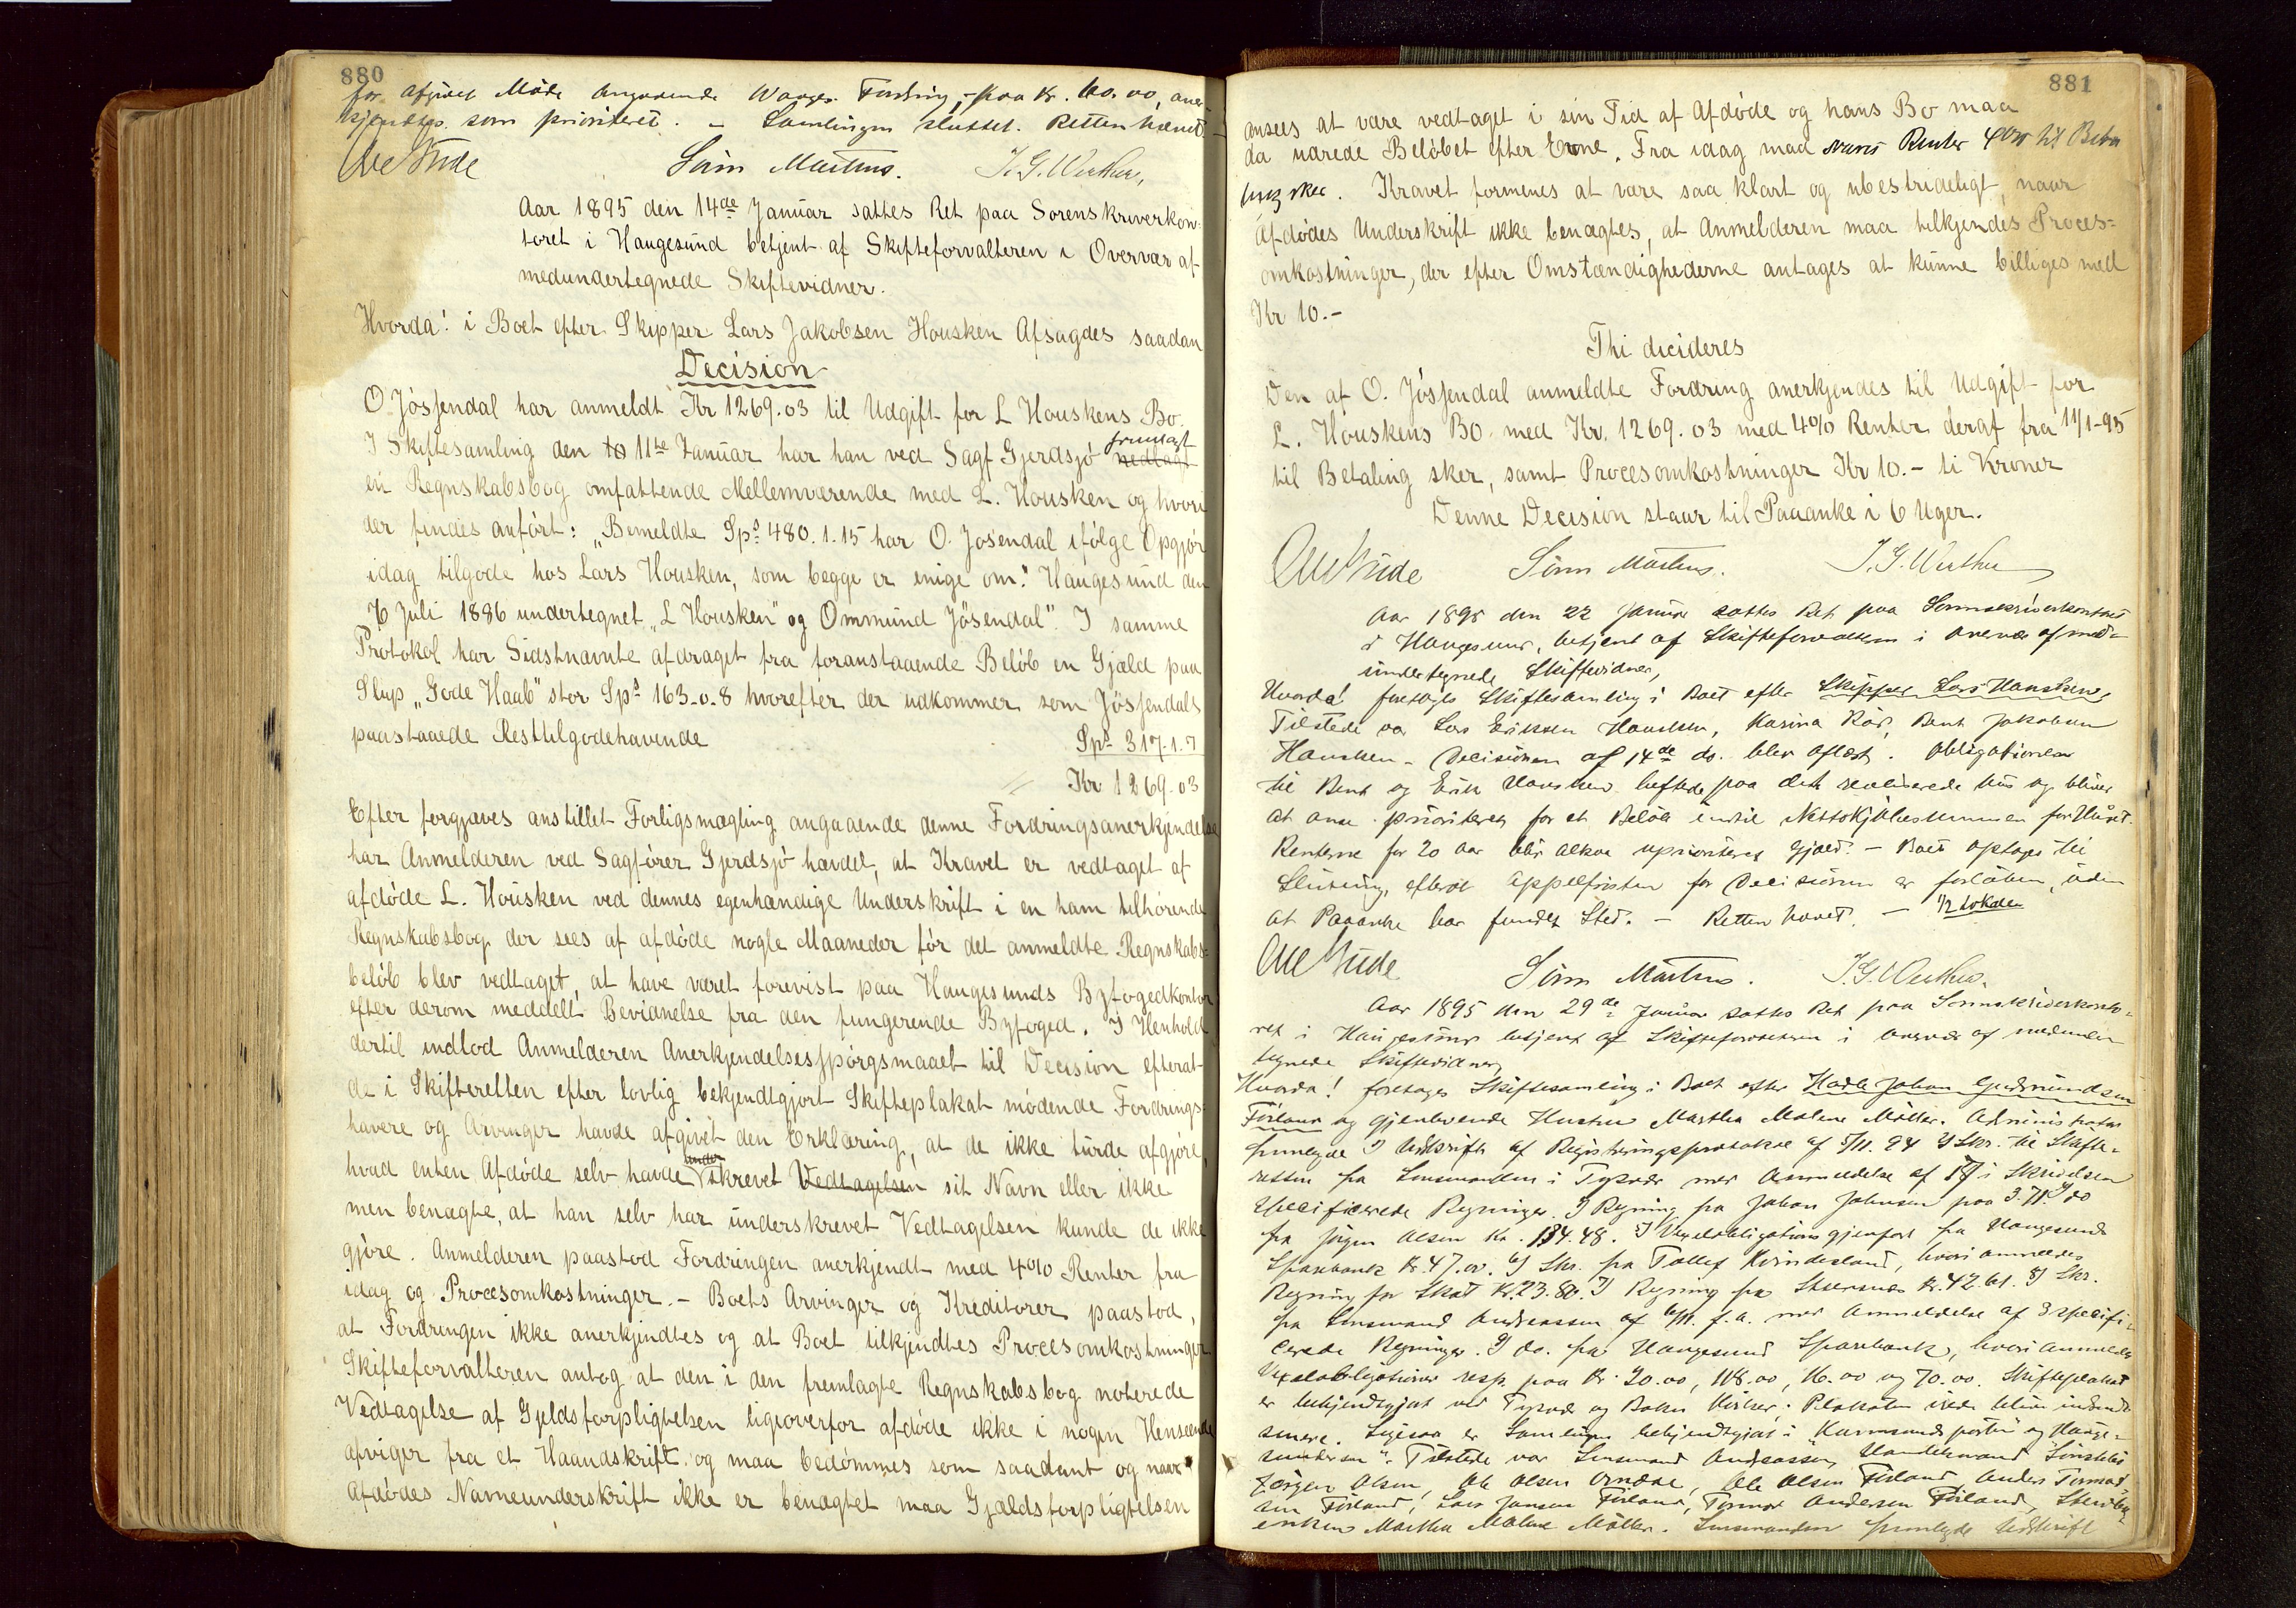 880
for afgivet Møde angaaende Fordring, paa Kr. 60.00, aner-
kjendtes som prioriteret. – Samlingen sluttet. Retten hævet –
Ole Gude Sørn Mæstens. J. G. Werther,
Aar 1895 den 14de Januar sattes Ret paa Sorenskriverkon-
toret i Haugesund betjent af Skifteforvalteren i Overvær af
medundertegnede Skiftevidner.
Hvorda! i Boet efter Skipper Lars Jakobsen Housken Afsagdes saadan
Decision
O. Jössendal har anmeldt Kr 1269.03 til Udgift for L Houskens Bo.
I Skiftesamling den to 11te Januar har han ved Sagf Gjerdsjö nedlagt fremlagt
en Regnskabsbog omfattende Mellemværende med L. Housken og hvori
der findes anfört: „Bemeldte Sps 480.1.15 har O. Josendal ifölge Opgjör
idag tilgode hos Lars Housken, som begge er enige om." Haugesund den
6 Juli 1886 undertegnet „L Housken" og Ommund Jösendal". I samme
Protokol har Sidstnævnte afdraget fra foranstaaende Belöb en Gjæld paa
Slup „Gode Haab" stor Sps 163-0-8 hvorefter der udkommer som Jössendals
paastaaede Resttilgodehavende Sps 317-1-7
Kr 1269-03
Efter forgjæves anstillet Forligsmægling angaaende denne Fordringsanerkjendelse
har Anmelderen ved Sagförer Gjerdsjö hævdet, at Kravet er vedtaget af
afdöde L. Housken ved dennes egenhændige Underskrift i en ham tilhörende
Regnskabsbog der sees af afdöde nogle Maaneder för det anmeldte Regnskabs-
belöb blev vedtaget, at have været forevist paa Haugesunds Byfogedkontor
efter derom meddelt Bevidnelse fra den fungerende Byfoged. I Henhold
dertil indlod Anmelderen Anerkjendelsesspörgsmaalet til Decision efterat
de i Skifteretten efter lovlig bekjendtgjort Skifteplakat mödende Fordrings-
havere og Arvinger havde afgivet den Erklæring, at de ikke turde afgjöre,
hvad enten Afdöde selv havde underskrevet Vedtagelsen sit Navn eller ikke
men benægte, at han selv har underskrevet Vedtagelsen kunde de ikke
gjöre. Anmelderen paastod Fordringen anerkjendt med 4% Renter fra
idag og Procesomkostninger. – Boets Arvinger og Kreditorer paastod,
at Fordringen ikke anerkjendtes og at Boet tilkjendtes Procesomkostninger.
Skifteforvalteren antog at den i den fremlagte Regnskabsbog noterede
Vedtagelse af Gjeldsforpligtelsen ligeoverfor afdöde ikke i nogen Henseende
afviger fra et Haandskrift og maa bedömmes som saadant og naar
Afdödes Navneunderskrift ikke er benægtet maa Gjældsforpligtelsen
881
ansees at være vedtaget i sin Tid af Afdöde og hans Bo maa
da udrede Belöbet efter Evne. Fra idag maa svares Renter 4% til Beta
ling sker. Kravet formenes at være saa klart og ubestrideligt, naar
Afdödes Underskrift ikke benægtes, at Anmelderen maa tilkjendes Proces-
omkostninger, der efter Omstændighederne antages at kunne billiges med
Kr 10.-
Thi decideres
Den af O. Jössendal anmeldte Fordring anerkjendes til Udgift for
L. Houskens Bo med Kr. 1269.03 med 4% Renter deraf fra 11/1-95
til Betaling sker, samt Procesomkostninger Kr 10.- ti Kroner
Denne Decision staar til Paaanke i 6 Uger.
Ole Gude Sørn Mæstens. J. G. Werther
Aar 1895 den 22 Januar sattes Ret paa Sorenskriverkontoret
i Haugesund, betjent af Skifteforvalteren i Overvær af med-
undertegnede Skiftevidner,
Hvorda! foretoges Skiftesamling i Boet efter Skipper Lars Housken,
Tilstede var Lars Eriksen Housken, Karina Bent Jakobsen
Housken – Decisionen af 14de ds. blev oplæst. Obligationen
til Bent og Erik Housken heftede paa det realiserede Hus og bliver
at anse prioriteret for et Beløb indtil Nettokjøbesummen for Huset.
Renterne for 20 Aar blir altsaa uprioriteret Gjæld. – Boet optages til
Slutning, efterat Appelfristen for Decisionen er forløben, uden
at Paaanke har fundet Sted. – Retten hævet. –
Ole Gude Sørn Mæstens. J. G. Werther.
Aar 1895 den 29de Januar sattes Ret paa Sorenskriverkonto-
ret i Haugesund betjent af Skifteforvalteren i Overvær af medunder
tegnede Skiftevidner,
Hvorda! foretoges Skiftesamling i Boet efter Johan Gudmundsen
Førland og gjenlevende Hustru Martha Malene Möller. Administrator
fremlagde Udskrift af Registreringsprotokol af 5/11. 94 Skr. til Skifte-
retten fra Lensmanden i Tysvær med Anmeldelse af i Skrivelsen
specificerede Regninger. Regning fra Johan Johnsen paa
fra Jörgen Olsen Kr. 134.48. gjenpart fra Haugesunds
Sparebank Kr. 47.00. Skr. fra Tollef Kvindesland, hvori anmeldes
Regning for Skat Kr. 23.80. Regning fra Kr. 42.61. Skr.
fra Lensmand Andreassen af f. a. med Anmeldelse af 3 specifi-
cerede Regninger. do. fra Haugesund Sparebank, hvori anmeldes
Vexelobligationer resp. paa Kr. 20.00, 118.00, 16.00 og 70.00. Skifteplakat
er bekjendtgjort ved Tysvær og Bokn Kirker; Plakaten
senere. Ligesaa er Samlingen bekjendtgjort i "Karmsundsposten" og "Hauge-
sunderen". Tilstede var Lensmand Andreassen, Handelsmand
Jörgen Olsen, Ole Olsen Ole Olsen Førland, Anders
sen Førland, Lars Jansen Førland, Tormod Andersen Førland,
enken Martha Malene Möller. Lensmanden fremlagde Udskrift